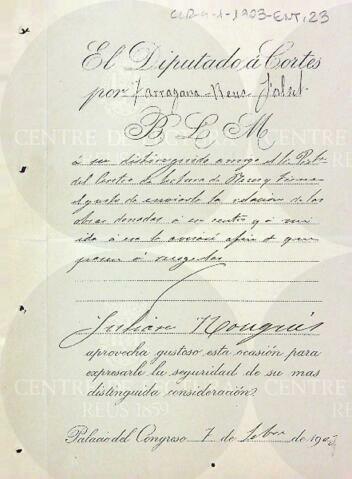 CLR-4-1-1903-ENT, 23
El Diputado á Cortes
por Tarragona-Reus-Falset
B. L. M
á su distinguido amigo el Sr. Pte
del Centro de lectura de Reus y tiene
el gusto de enviarle la relación de las
obras donadas á ese centro y á
ida á esa le avisará afin de que
pasen á recogerlas
Julián Nougués
aprovecha gustoso esta ocasión para
expresarle la seguridad de su mas
distinguida consideración.
Palacio del Congreso 7 de de 190
CENTRE DE LECTURA
REUS 1859